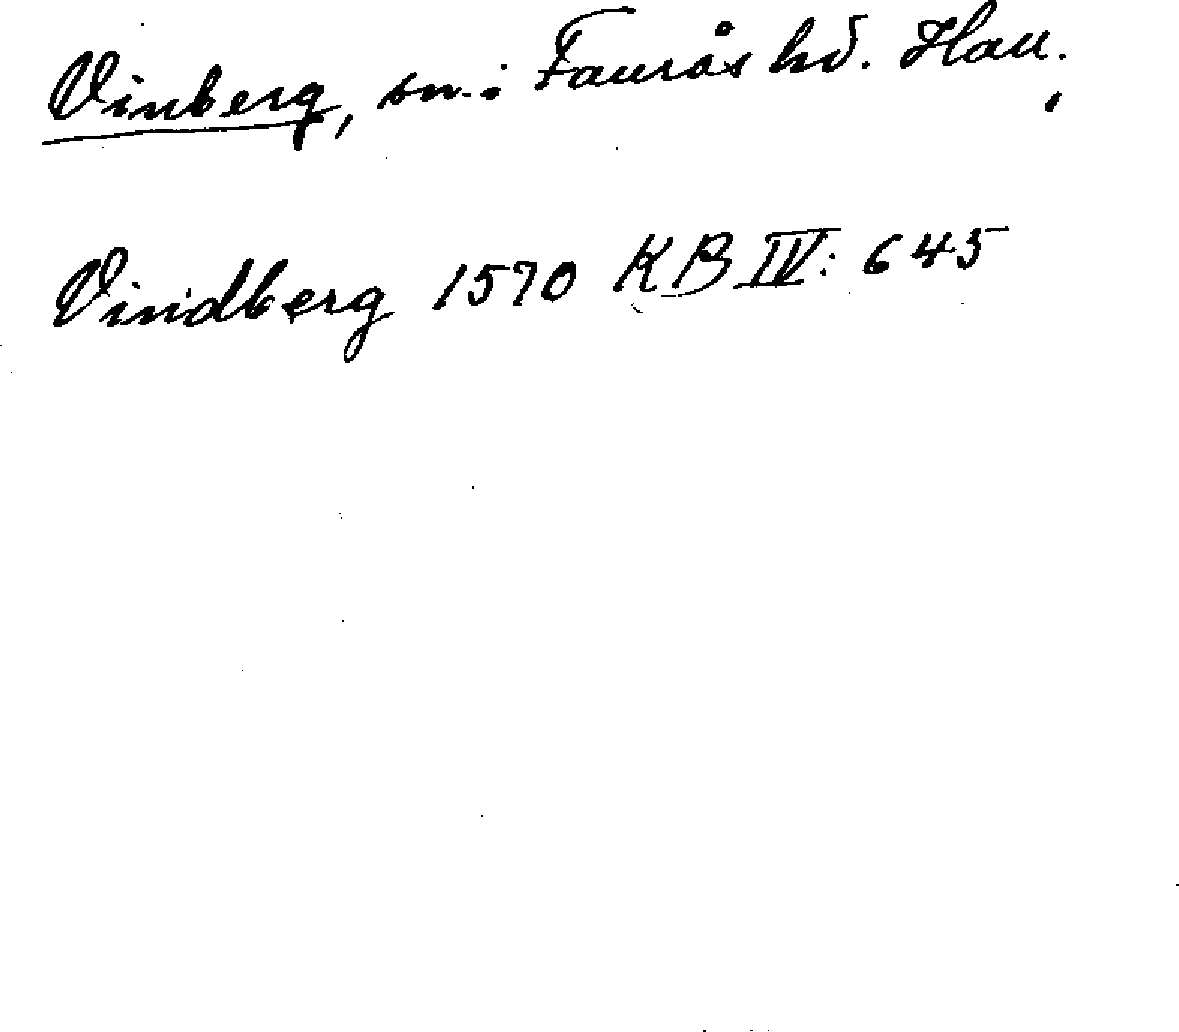 Vinberg, sn. i Faurås hd. Hall.
Vindberg 1570 KB IV: 645